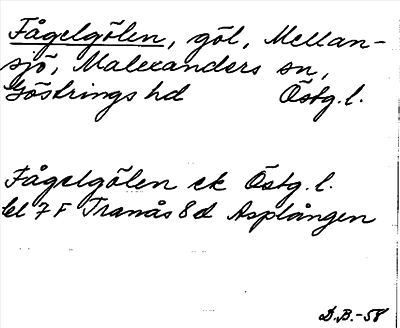 Fågelgölen, göl, Mellan-
sjö, Malexanders sn,
Göstrings hd Östg. l.
Fågelgölen ek Östg. l.
bl 7 F Tranås 8d Asplången
D.B.-58